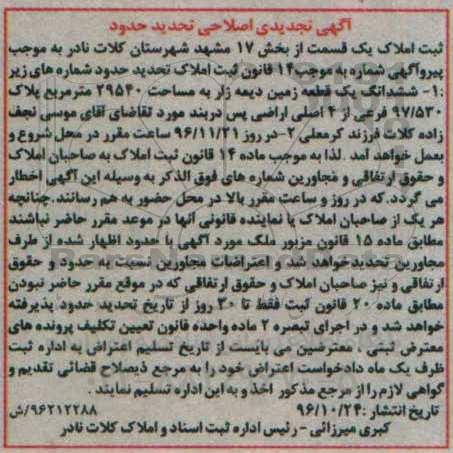 آگهی تجدیدی اصلاحی تحدید حدود
ثبت املاک یک قسمت از بخش ۱۷ مشهد شهرستان کلات نادر به موجب
پیروآگهی شماره به موجب ۱۴ قانون ثبت املاک تحدید حدود شماره های زیر
:۱- ششدانگ یک قطعه زمین دیمه زار به مساحت ۲۹۵۴۰ مترمربع پلاک
۹۷/۵۳۰ فرعی از ۴ اصلی اراضی پس دربند مورد تقاضای آقای موسی نجف
زاده کلات فرزند کرمعلی ۲-در روز ۹۶/۱۱/۲۱ ساعت مقرر در محل شروع و
بعمل خواهد آمد .لذا به موجب ماده ۱۴ قانون ثبت املاک به صاحبان املاک
و حقوق ارتفاقی و مجاورین شماره های فوق الذکر به وسیله این آگهی اخطار
می گردد.که در روز و ساعت مقرر بالا در محل حضور به هم رسانند.چنانچه
هر یک از صاحبان املاک یا نماینده قانونی آنها در موعد مقرر حاضر نباشند
مطابق ماده ۱۵ قانون مزبور ملک مورد آگهی با حدود اظهار شده از طرف
مجاورین تحدیدخواهد شد و اعتراضات مجاورین نسبت به حدود و حقوق
ارتفاقی و نیز صاحبان املاک و حقوق ارتفاقی که در موقع مقرر حاضر نبودن
مطابق ماده ۲۰ قانون ثبت فقط تا ۳۰ روز از تاریخ تحدید حدود پذیرفته
خواهد شد و در اجرای تبصره ۲ ماده واحده قانون تعیین تکلیف پرونده های
معترض ثبتی ، معترضین می بایست از تاریخ تسلیم اعتراض به اداره ثبت
ظرف یک ماه دادخواست اعتراض خود را به مرجع ذیصلاح قضائی تقدیم و
گواهی لازم را از مرجع مذکور اخذ و به این اداره تسلیم نمایند .
تاریخ انتشار :۹۶/۱۰/۲۴ ۹۶۲۱۲۲۸۸/ش
کبری میرزائی - رئیس اداره ثبت اسناد و املاک کلات نادر